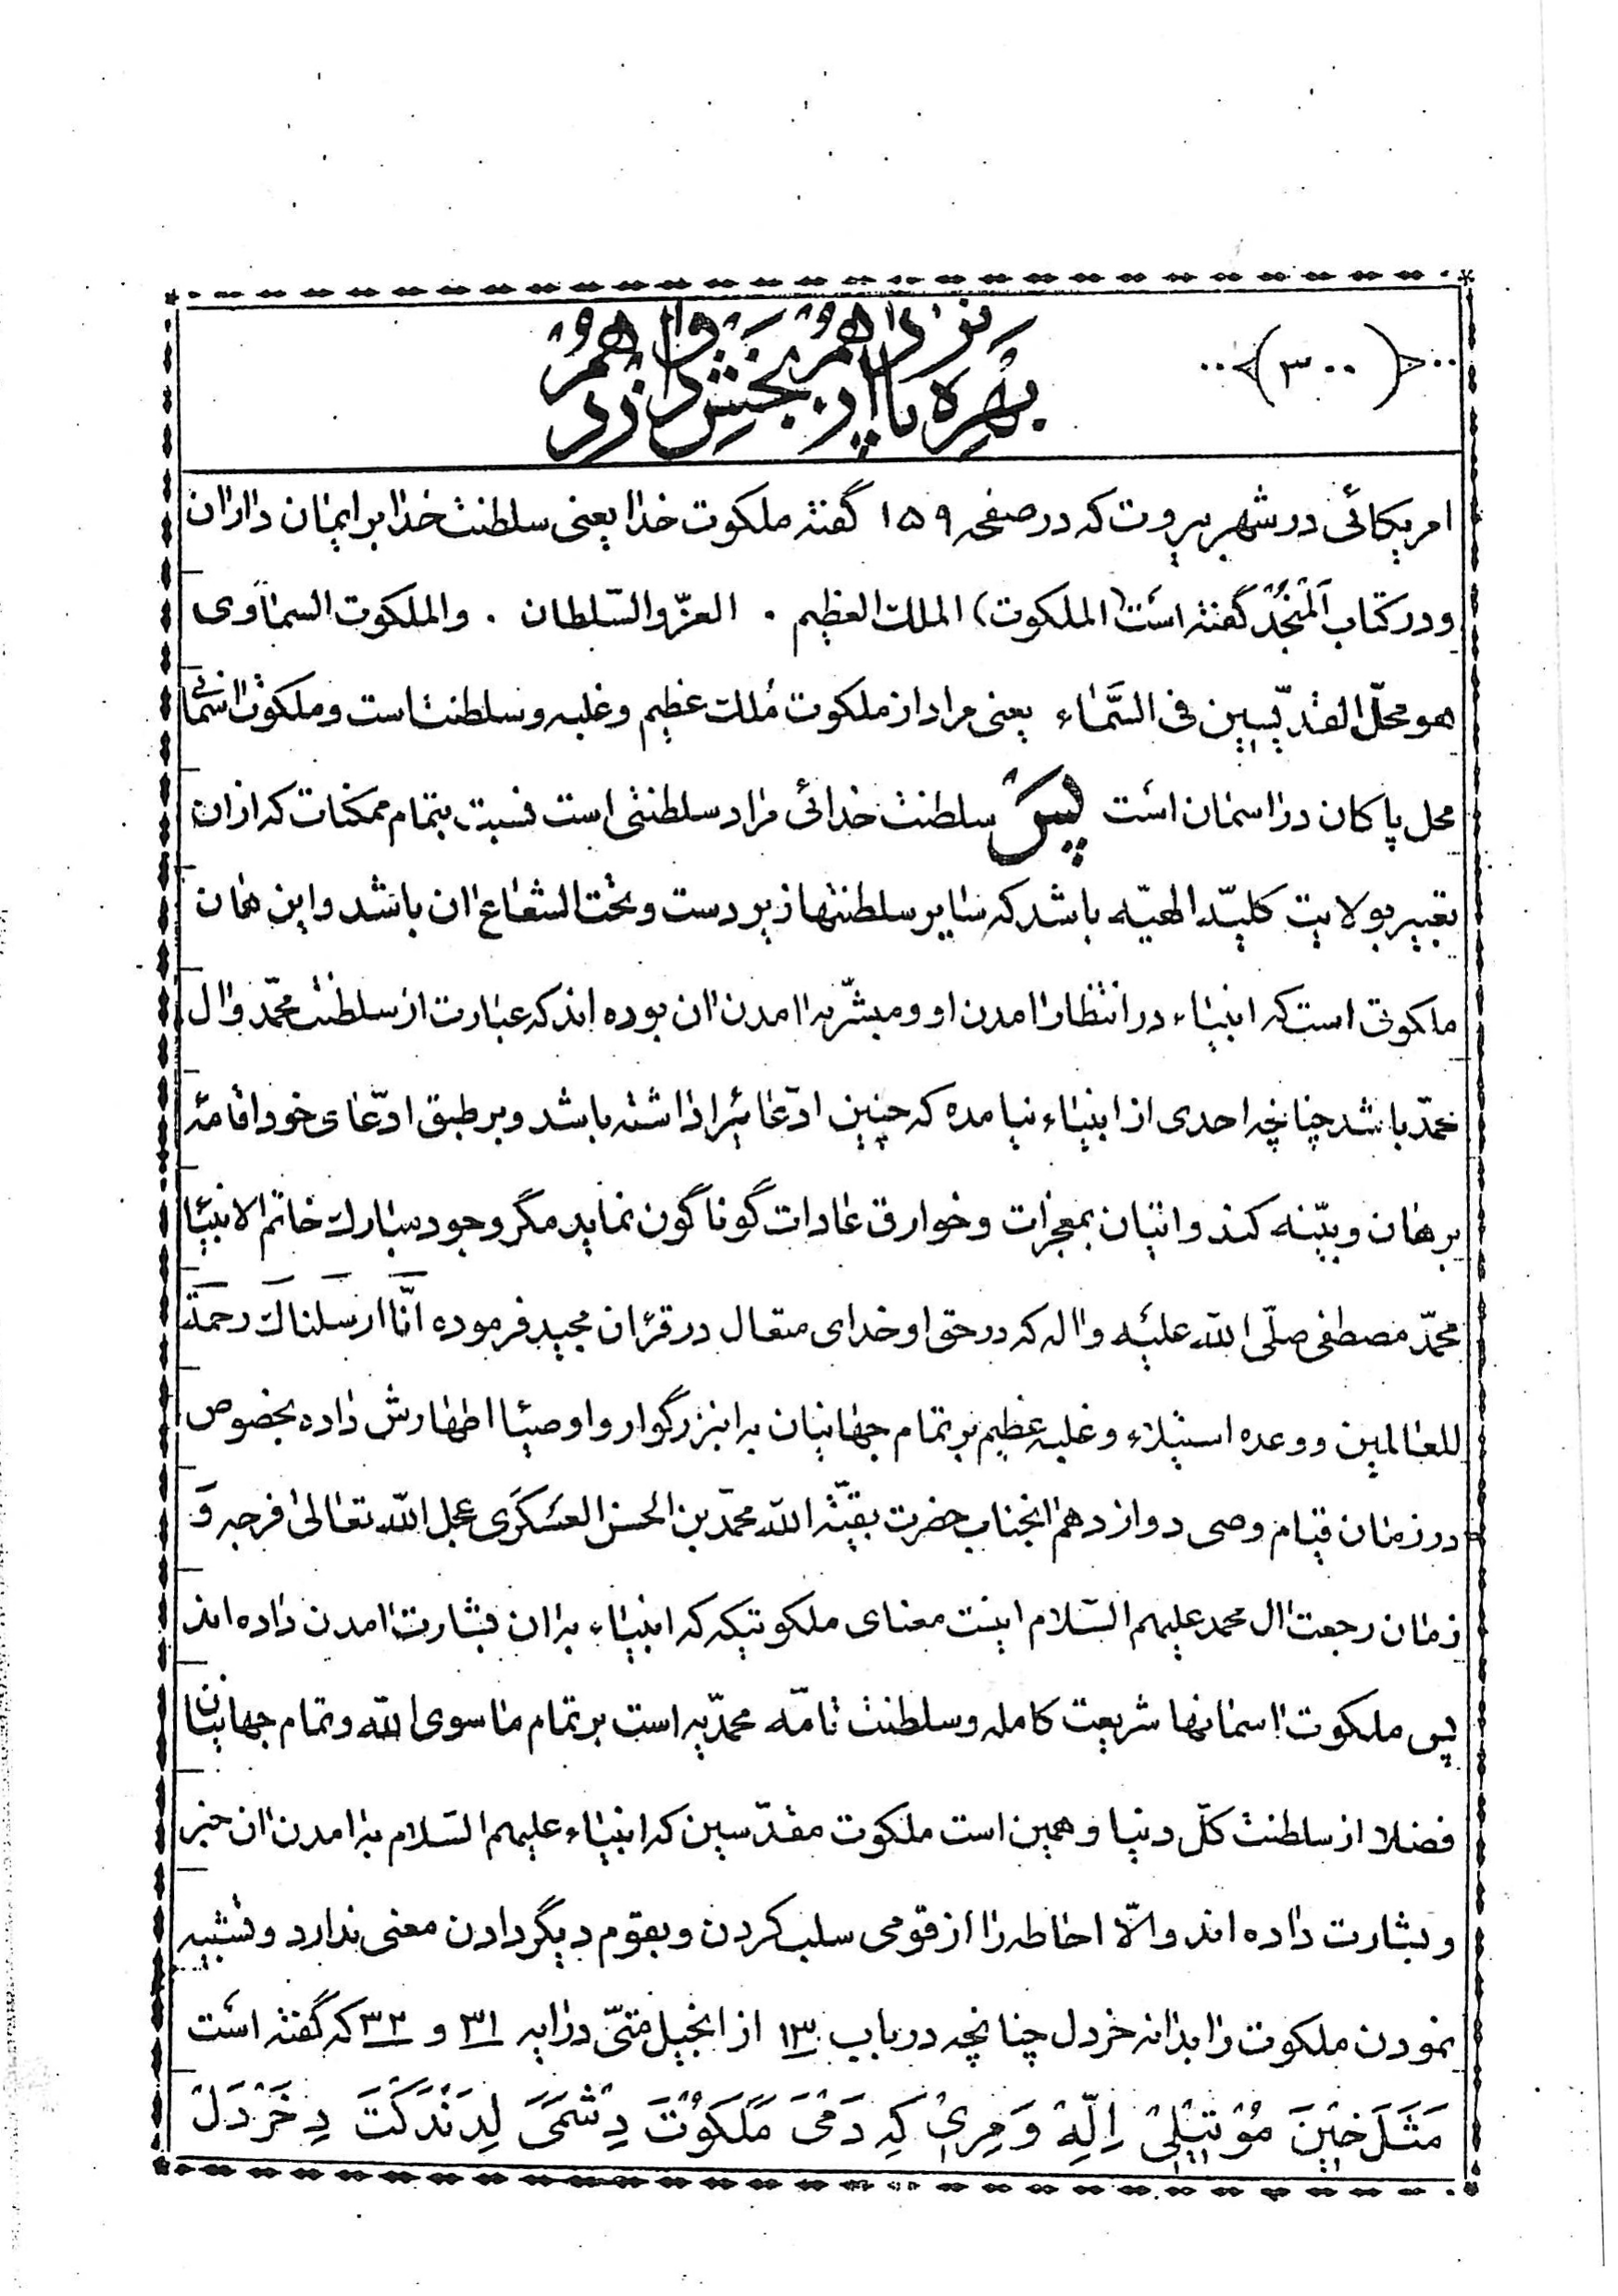 (۳۰۰)
بهره پانزدهم از بخش دوازدهم
امریکائی در شهر بیروت که در صفحه ۱۵۹ گفته ملکوت خدا یعنی سلطنت خدا بر ایمان داران
و در کتاب اَلمُنجِد گفته است (الملکوت) الملک العظیم . العزّ والسّلطان . والملکوت السماوی
هو محلّ القدّیسین فی السَّماء یعنی مراد از ملکوت مُلک عظیم و غلبه و سلطنت است و ملکوت اسمانی
محل پاکان در اسمان است پس سلطنت خدائی مراد سلطنتی است نسبت بتمام ممکنات که از ان
تعبیر بولایت کلیّه الهیّه باشد که سایر سلطنتها زیر دست و تحت الشعاع ان باشد و این همان
ملکوتی است که انبیاء در انتظار امدن او و مبشّر به امدن ان بوده اند که عبارت از سلطنت محمّد و ال
محمّد باشد چنانچه احدی از انبیاء نیامده که چنین ادّعائیرا داشته باشد و بر طبق ادّعای خود اقامهٔ
برهان و بیّنه کند و اتیان بمعجزات و خوارق عادات گوناگون نماید مگر وجود مبارک خاتم الانبیا
محمّد مصطفی صلّی الله علیه و اله که در حق او خدای متعال در قرءان مجید فرموده اِنّا ارسَلناکَ رحمةً
للعالمین و وعده استیلاء و غلبه عظیم بر تمام جهانیان به انبزرگوار و اوصیا اطهارش داده بخصوص
در زمان قیام وصی دوازدهم انجناب حضرت بقیّة الله محمّد بن الحسن العسکری عجل الله تعالی فرجه وَ
زمان رجعت ال محمد علیهم السّلام اینست معنای ملکوتیکه که انبیاء به ان بشارت امدن داده اند
پس ملکوت اسمانها شریعت کامله و سلطنت تامّه محمّدیه است بر تمام ما سوی الله و تمام جهانیان
فضلا از سلطنت کلّ دنیا و همین است ملکوت مقدّسین که انبیاء علیهم السّلام به امدن ان خبر
و بشارت داده اند و الّا احاطه را از قومی سلب کردن و بقوم دیگر دادن معنی ندارد و تشبیه
نمودن ملکوت را بدانه خردل چنانچه در باب ۱۳ از انجیل متیّ در ایه ۳۱ و ۳۲ که گفته است
مَثَلَ خِیْنَ مُوْتِبْلِیْ اِلّهِ وَ مِرِیْ کِه دَمْیَ مَلَکوُتَ دِشْمَیَ لِدَنْدَکْتَ دِخَرْدَلْ